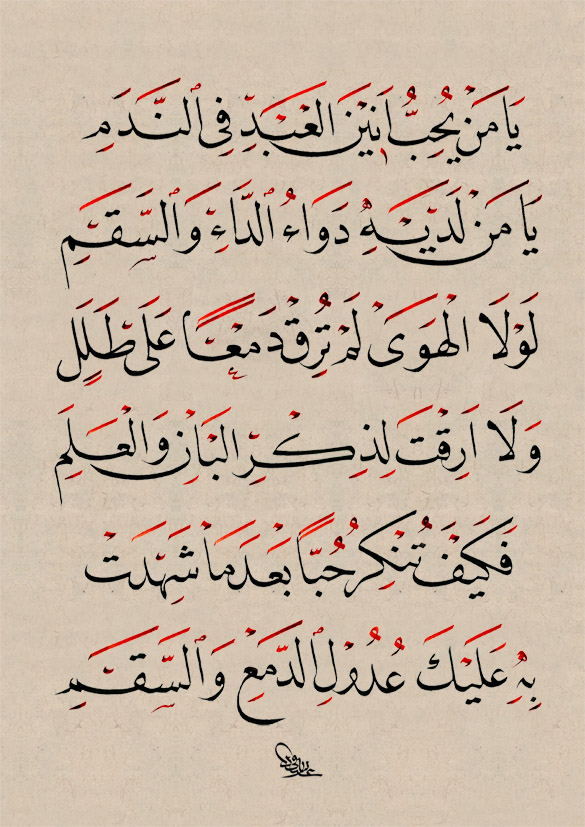 يَا مَنْ يُحِبُّ اَنِينَ الْعَبْدِ فِي ٱلنَّدَمِ
يَا مَنْ لَدَيْهِ دَوَاءُ ٱلدَّاءِ وَٱلسَّقَمِ
لَوْلَا الْهَوَى لَمْ تُرِقْ دَمْعًا عَلَى طَلَلٍ
وَلَا اَرِقْتَ لِذِكْرِ الْبَانِ وَالْعَلَمِ
فَكَيْفَ تُنْكِرُ حُبًّا بَعْدَ مَا شَهِدَتْ
بِهِ عَلَيْكَ عُدُولُ ٱلدَّمْعِ وَٱلسَّقَمِ